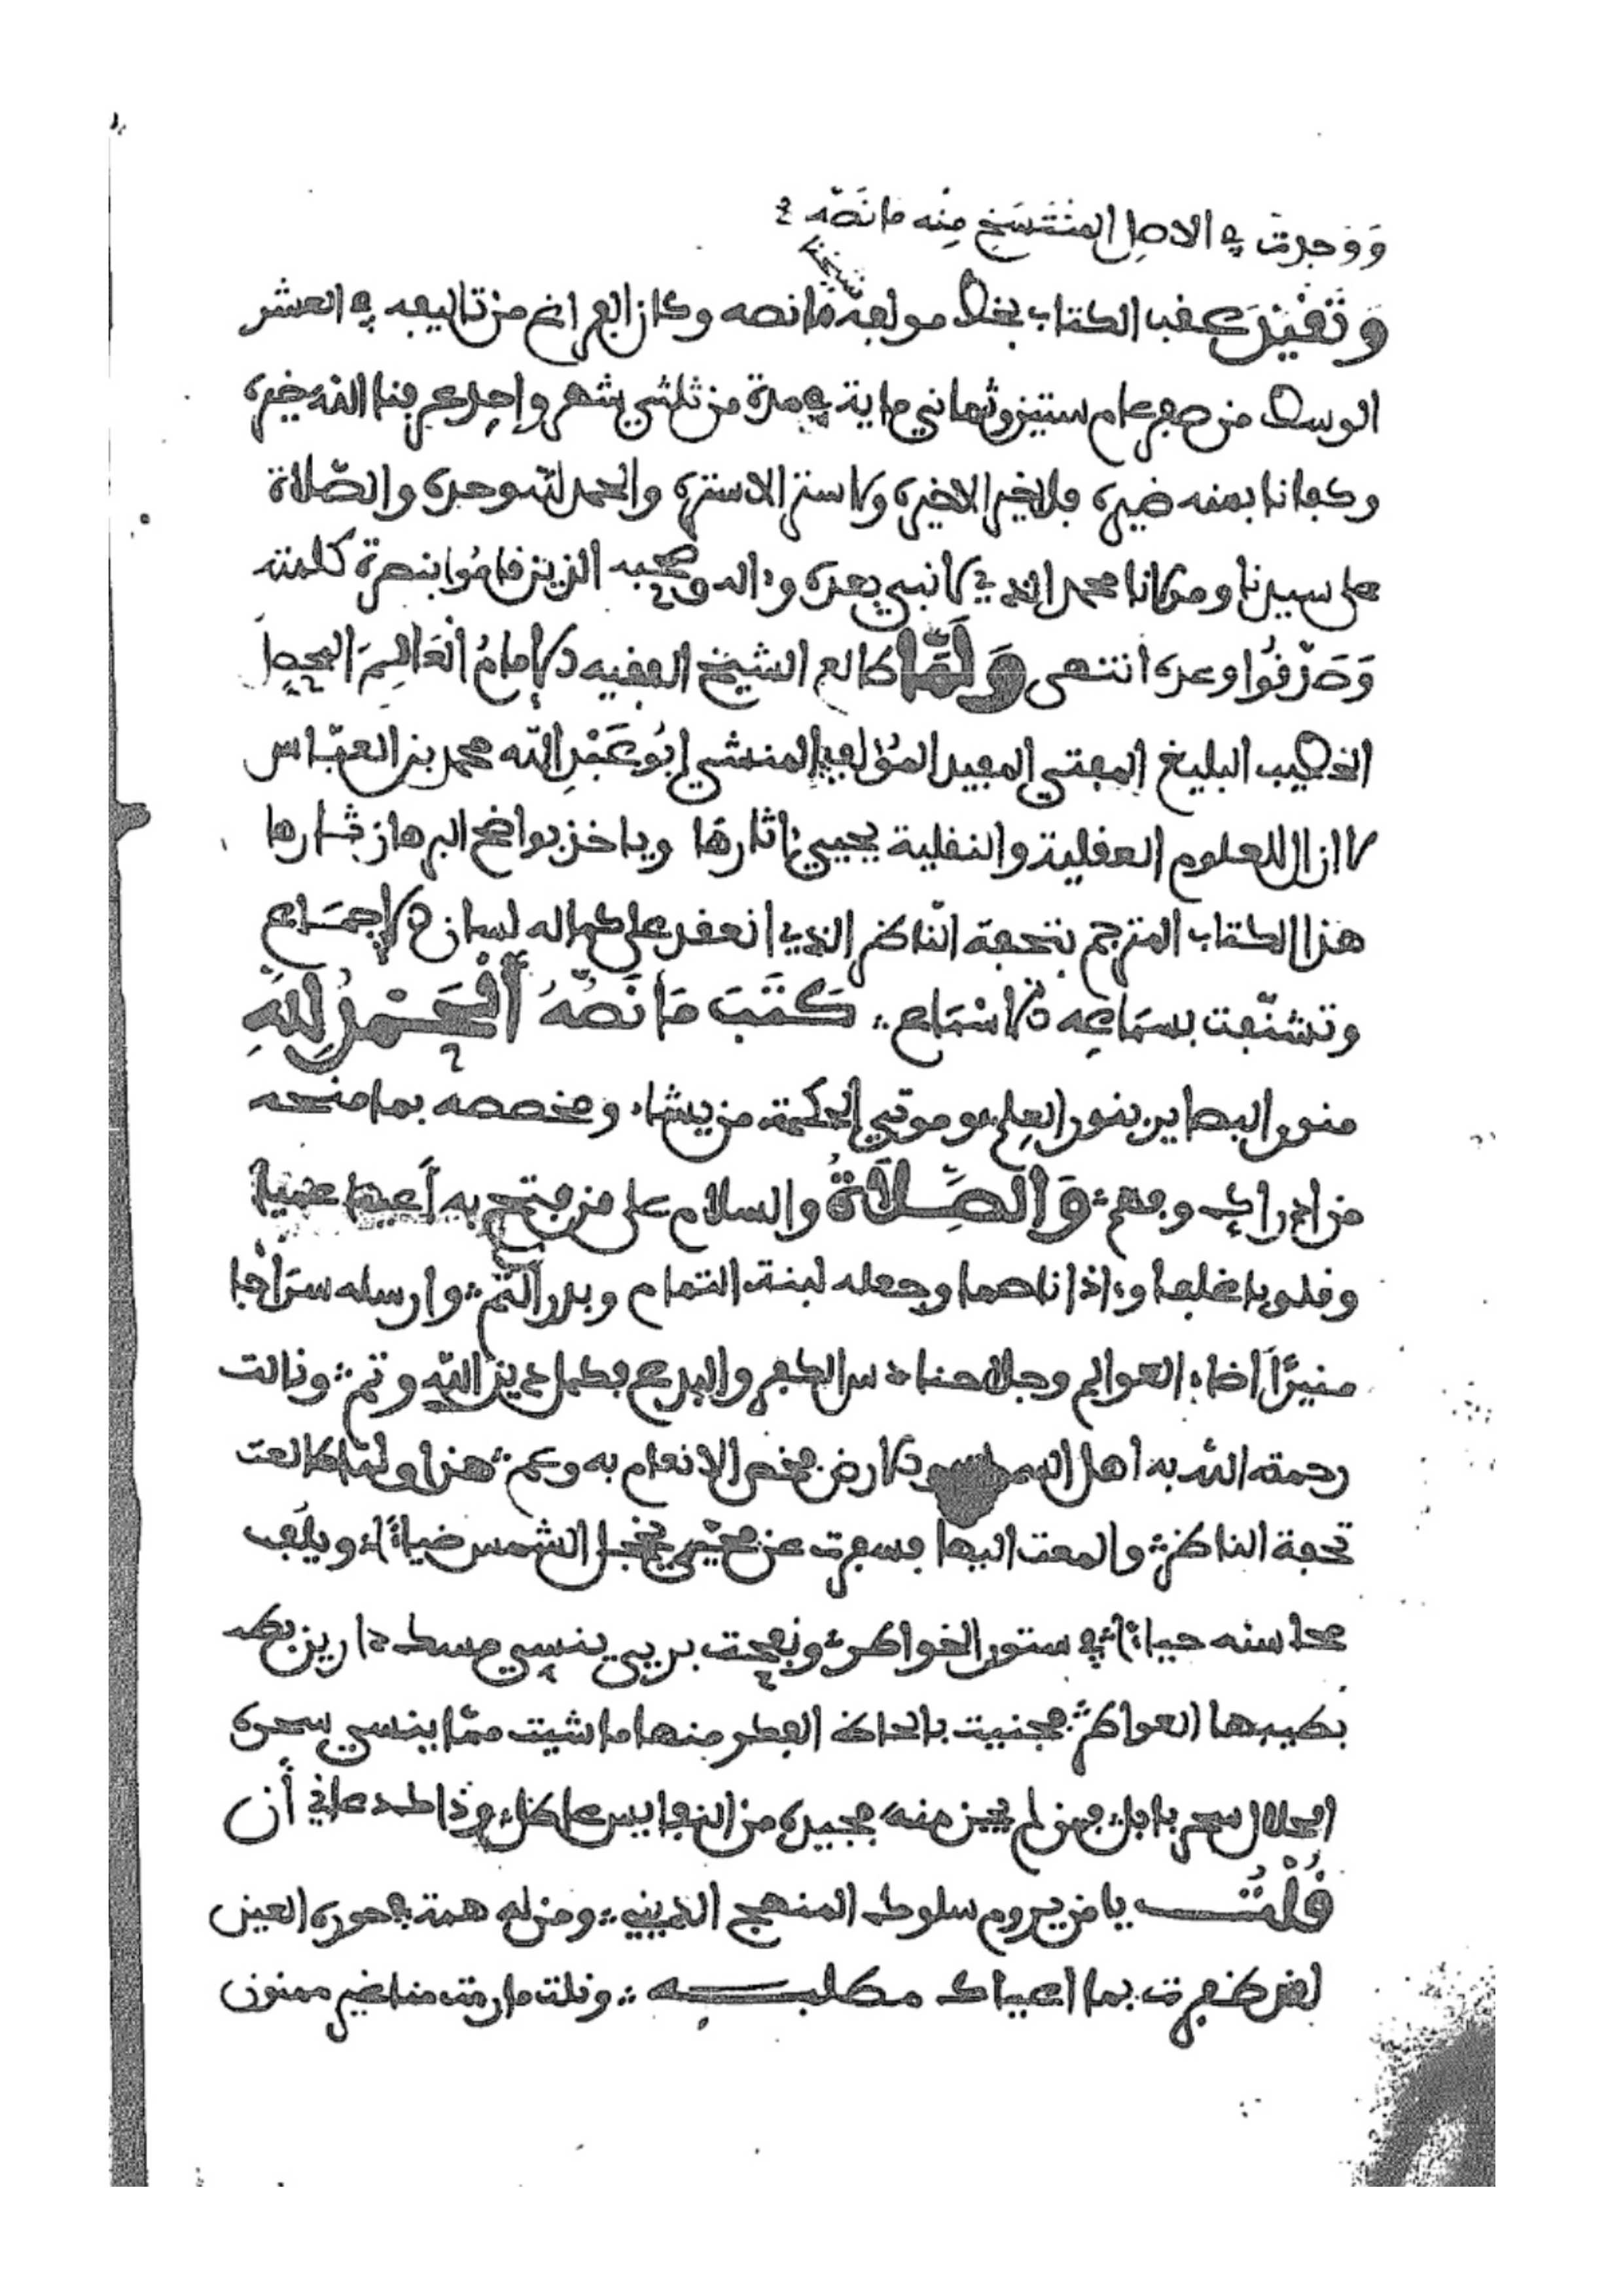 وَوَجدتّ في الاصل المنتسَخ مِنْه ما نَصّه
وَتَقَيَّدَ عقب الكتاب بخط مولفه ما نصه وكان الفراغ من تاليفه في العشر
الوسط من صفر عام ستين وثماني ماية في مدة من ثلثي شهر واحد عرفنا الله خيره
وكفانا بمنه ضيره فلا خير الا خيره ولا ستر الا ستره والحمد لله وحده والصّلاة
على سيدنا ومولانا محمد الذي لا نبي بعده وءاله وصحبه الذين قامُوا بنصرة كلمته
وَصَدّقُوا وعده انتهى وَلَمَّا طالع الشيخ الفقيه الإمامُ العَالِمَ
الخطيب البليغ المفتي المفيد المؤلف المنشي ابُو عَبْدِ الله محمد بن العبّاس
لا زال للعلوم العقلية والنقلية يحيي ءاثارهَا وياخذ بواضح البرهان بثارها
هذا الكتاب المترجم بتحفة النّاظر الذي انعقد على كماله لسان الإجمَاع
وتشنّفت بسمَاعِه الاسْمَاع كَتَبَ مَا نَصُّهُ اَلْحَمْدُ لِلهِ
منور البصاير بنور العلم وموتي الحكمة من يشاء ومخصصه بما منحه
من ادراك وفهم وَالصَّلَاةُ والسلام على من فتح به أَعينا عميا
وقلوبا غلفا وءاذانا صما وجعله لبنة التمام وبدر التّم وارسله سرَاجا
منيرًا اضاء العوالم وجلا حنادس الكفر والبدع فكمل دين الله وتم ونالت
رحمة الله به اهل السموات والارض فخص الانعام به وعم هذا ولمّا طالعت
تحفة الناظر والمعت اليها فسفرت عن محيّى يخجل الشمس ضياءً ويلف
محاسنه حياءً في ستور الخواطر ونفحت بريى ينسي مسك دارين بطـ
بطيبها العواطر فجنيت بالحاظ الفطر منها ما شيت ممّا ينسي سحره
الحلال سحر بابل فمن لم يحز منه بجيده من النفايس عاطل وذاك دعاني أن
قُلْتُ يا من يروم سلوك المنهج الديني ومن له همة في حوره العين
لقد ظفرت بما اعياك مطلبه ونلت ما رمت منا غير ممنون